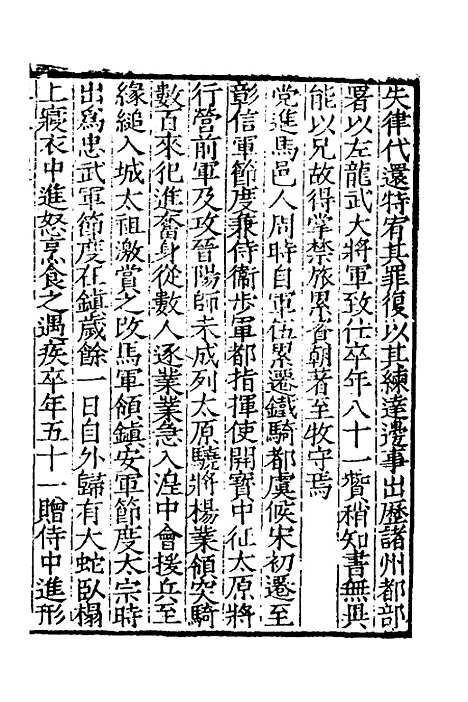 失律代還特宥其罪復以其練達邊事出歷諸州都部
署以左龍武大將軍致仕卒年八十一贇稍知書無異
能以兄故得掌禁旅累首朝著至牧守焉
党進馬邑人周時自軍伍累遷鐵騎都虞候宋初遷至
彰信軍節度兼侍衞步軍都指揮使開寶中征太原將
行營前軍及攻晉陽師未成列太原驍將楊業領突騎
數百來犯進奮身從數人逐業業急入湟中會援兵至
緣縋入城太祖激賞之改馬軍領鎮安軍節度太宗時
出爲忠武軍節度在鎮歲餘一日自外歸有大蛇臥榻
上寢衣中進怒烹食之遇疾卒年五十一贈侍中進形